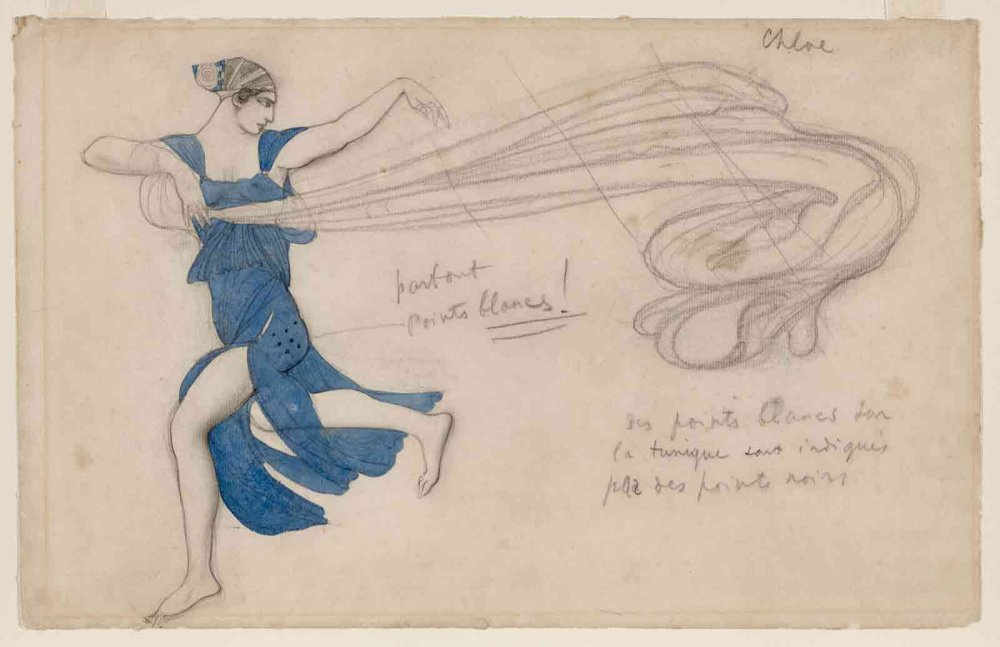 Chloe
partout
points blancs!
des points blancs sur
la tunique sont indiqués
par des points noirs.